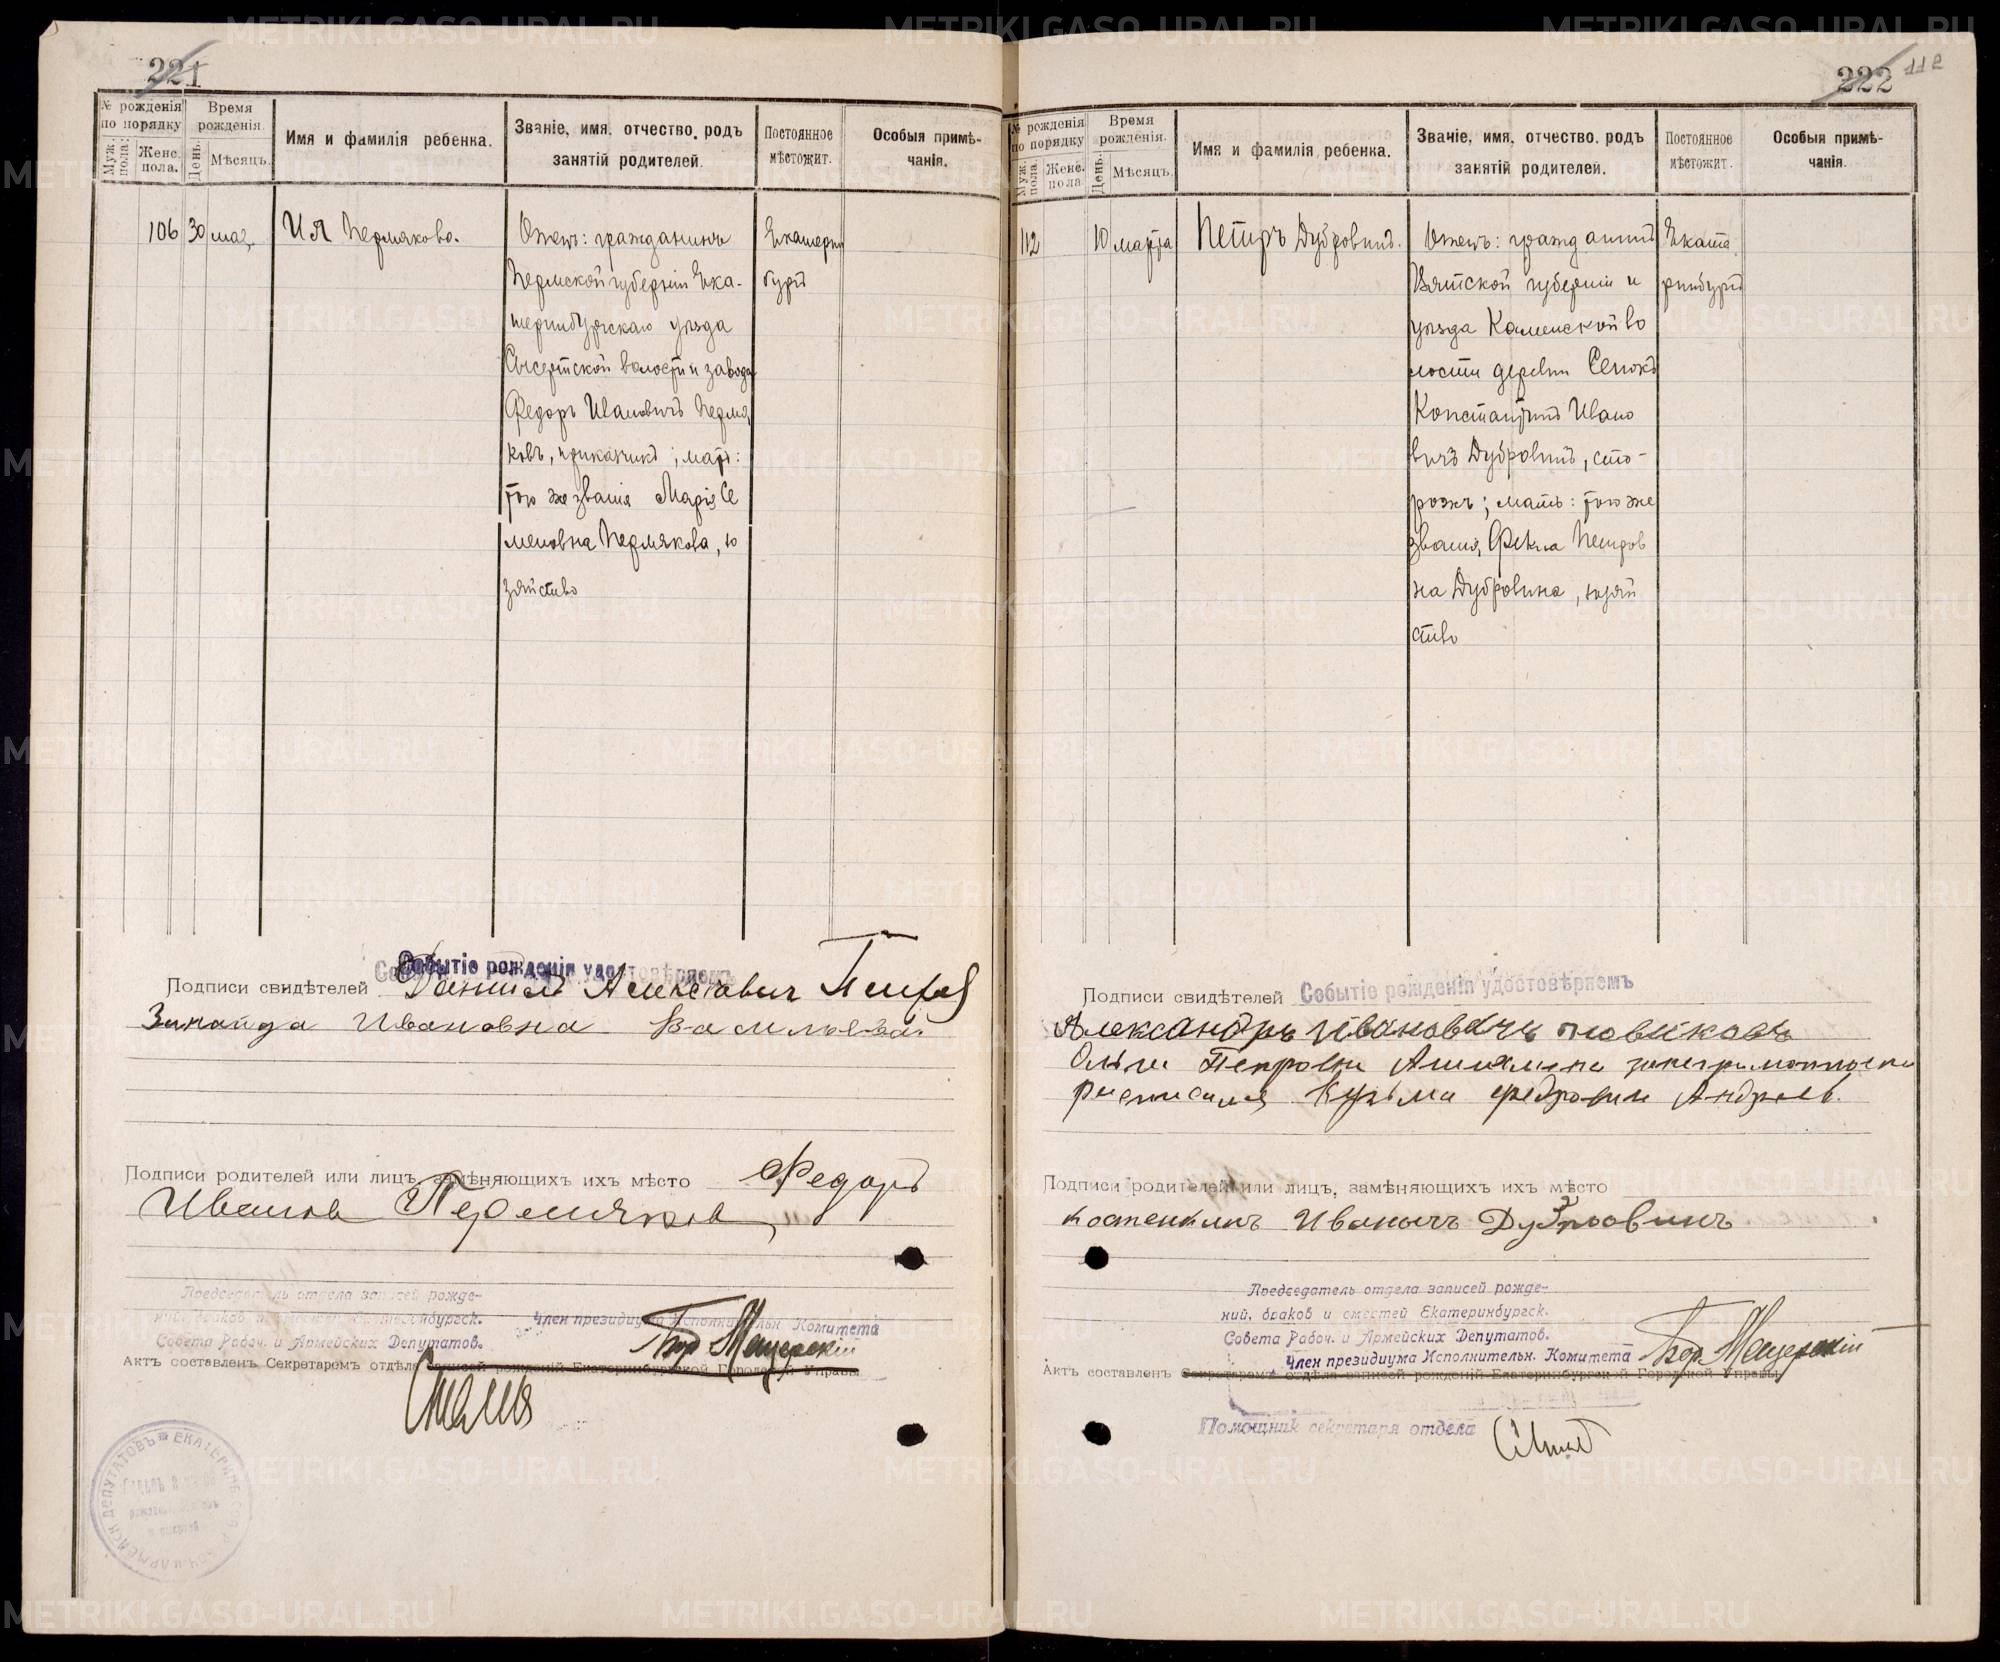 221
№ рожденія по порядку
Муж. пола.
Женс. пола.
Время рожденія.
День.
Мѣсяцъ.
Имя и фамилія ребенка.
Званіе, имя, отчество, родъ
занятій родителей.
Постоянное
мѣстожит.
Особыя примѣ-
чанія.
106 30 мая Ия Пермякова.
Отецъ: гражданинъ
Пермской губерніи Ека-
теринбургскаго уѣзда
Сысертской волости и завода
Федоръ Ивановичъ Пермя
ковъ, приказчикъ; мать:
того же званія Марія Се
меновна Пермякова, хо
зяйство
Екатерин
бургъ
Подписи свидѣтелей
Событіе рожденія удостовѣряемъ
Алексѣевич
Ивановна
Подписи родителей или лицъ, замѣняющихъ ихъ мѣсто Федоръ
Иванов Пермяков
Председатель отдела записей рожде-
ний, браков и смертей Екатеринбургск.
Совета Рабоч. и Армейских Депутатов.
Член президиума Исполнительн. Комитета
Актъ составленъ Секретаремъ отдѣла записей рожденій Екатеринбургской Городской Управы
222
112
№ рожденія по порядку
Муж. пола.
Женс. пола
Время рожденія.
День.
Мѣсяцъ.
Имя и фамилія ребенка.
Званіе, имя, отчество, родъ
занятій родителей.
Постоянное
мѣстожит.
Особыя примѣ-
чанія.
112 10 марта Петръ Дубровинъ.
Отецъ: гражданинъ
Вятской губерніи и
уѣзда Каменской во
лости деревни
Константинъ Ивано
вичъ Дубровинъ, сто-
рожъ; мать: того же
званія, Фекла Петров
на Дубровина, хозяй
ство
Екате
ринбургъ
Подписи свидѣтелей
Событіе рожденія удостовѣряемъ
Александръ Ивановичъ Новиковъ
Ольги Петровны
росписался Кузьма Федрович Андреев.
Подписи родителей или лицъ, замѣняющихъ ихъ мѣсто
Иваныч Дубровинъ
Председатель отдела записей рожде-
ний, браков и смертей Екатеринбургск.
Совета Рабоч. и Армейских Депутатов.
Член президиума Исполнительн. Комитета
Актъ составленъ Секретаремъ отдѣла записей рожденій Екатеринбургской Городской Управы
Помощник секретаря отдела
METRIKI.GASO-URAL.RU